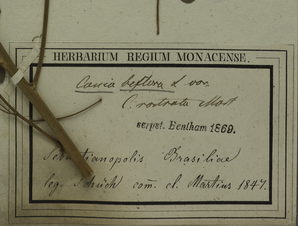 HERBARIUM REGIUM MONACENSE.
Cassia biflora L var.
C. rostrata Mart
serpst. Bentham 1869.
Sebastianopolis Brasiliae
leg. Schüch com. cl. Martius 1847.